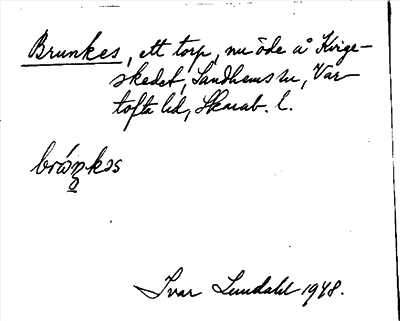 Brunkes, ett torp, nu öde å Kvige-
skedet, Sandhems sn, Var-
tofta hd, Skarab. l.
bró̱ŋkəs
Ivar Lundahl 1948.